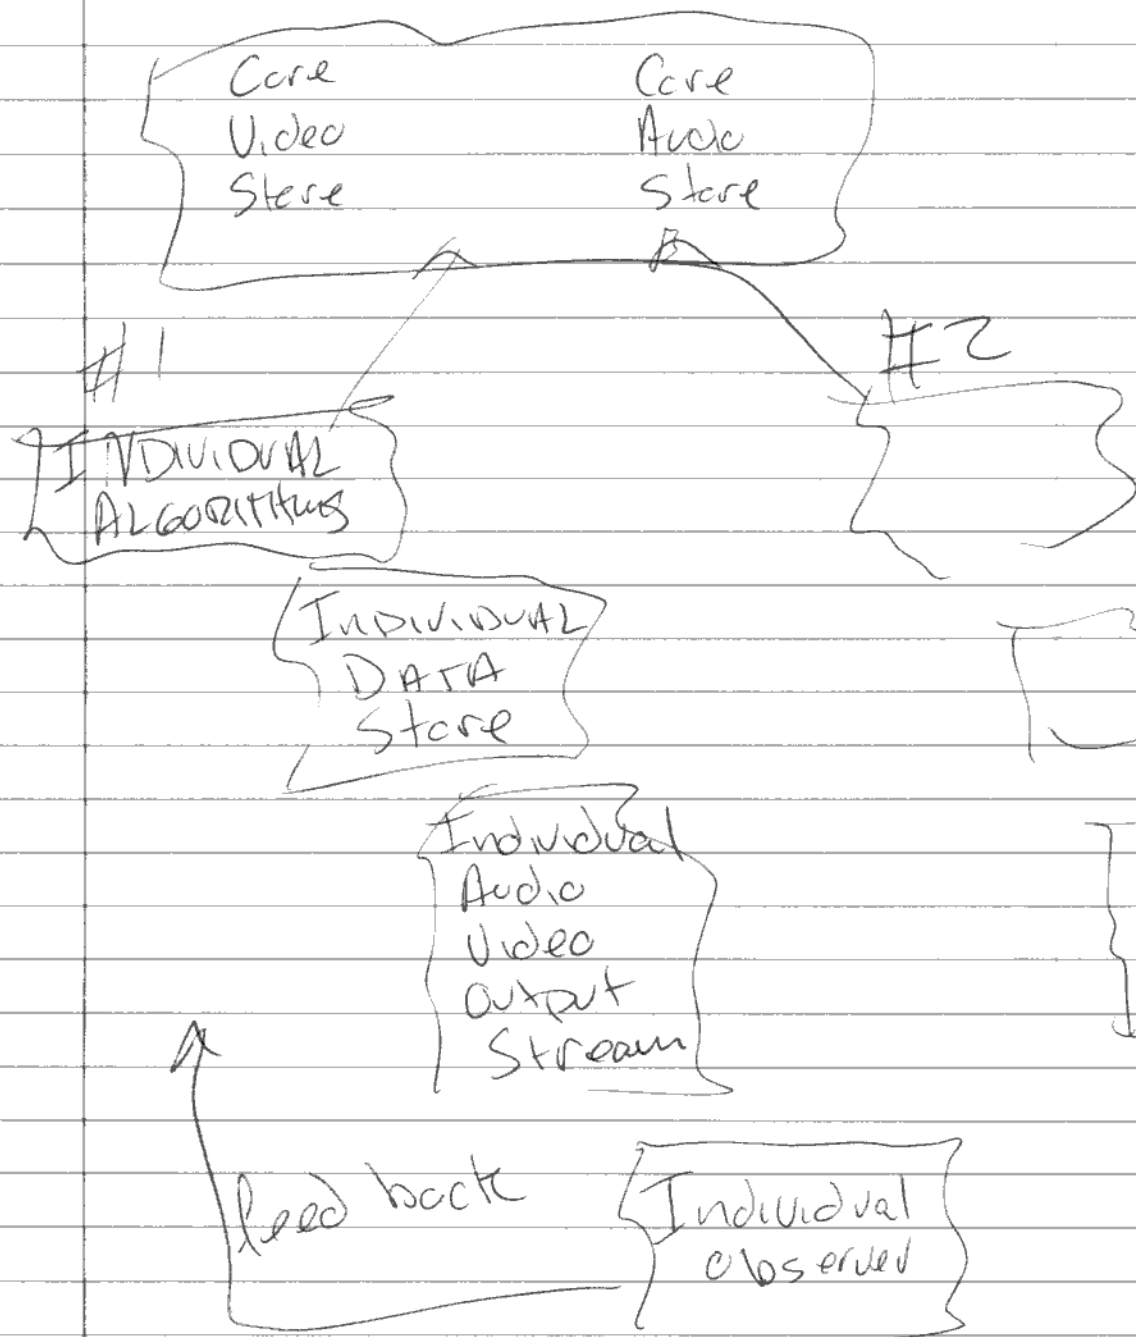 Core
Video
Store
Core
Audio
Store
#1
#2
INDIVIDUAL
ALGORITHMS
INDIVIDUAL
DATA
Store
Individual
Audio
Video
Output
Stream
feed back
Individual
observer